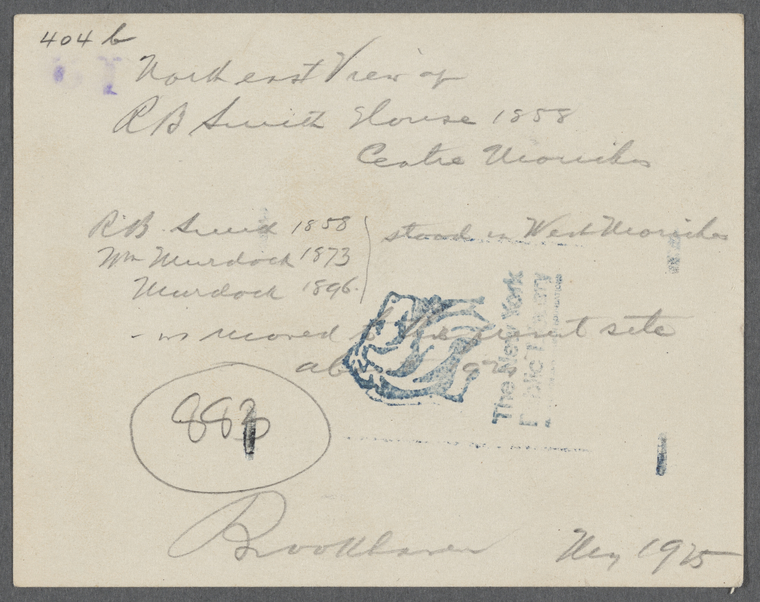 404 b
North east View of
RB Smith House 1858
Centre Moriches
R.B. Smith 1858
Wm Murdock 1873
Murdock 1896.
stood in West Moriches
removed to the present site
The New York
Public Library
Brookhaven
May 1925